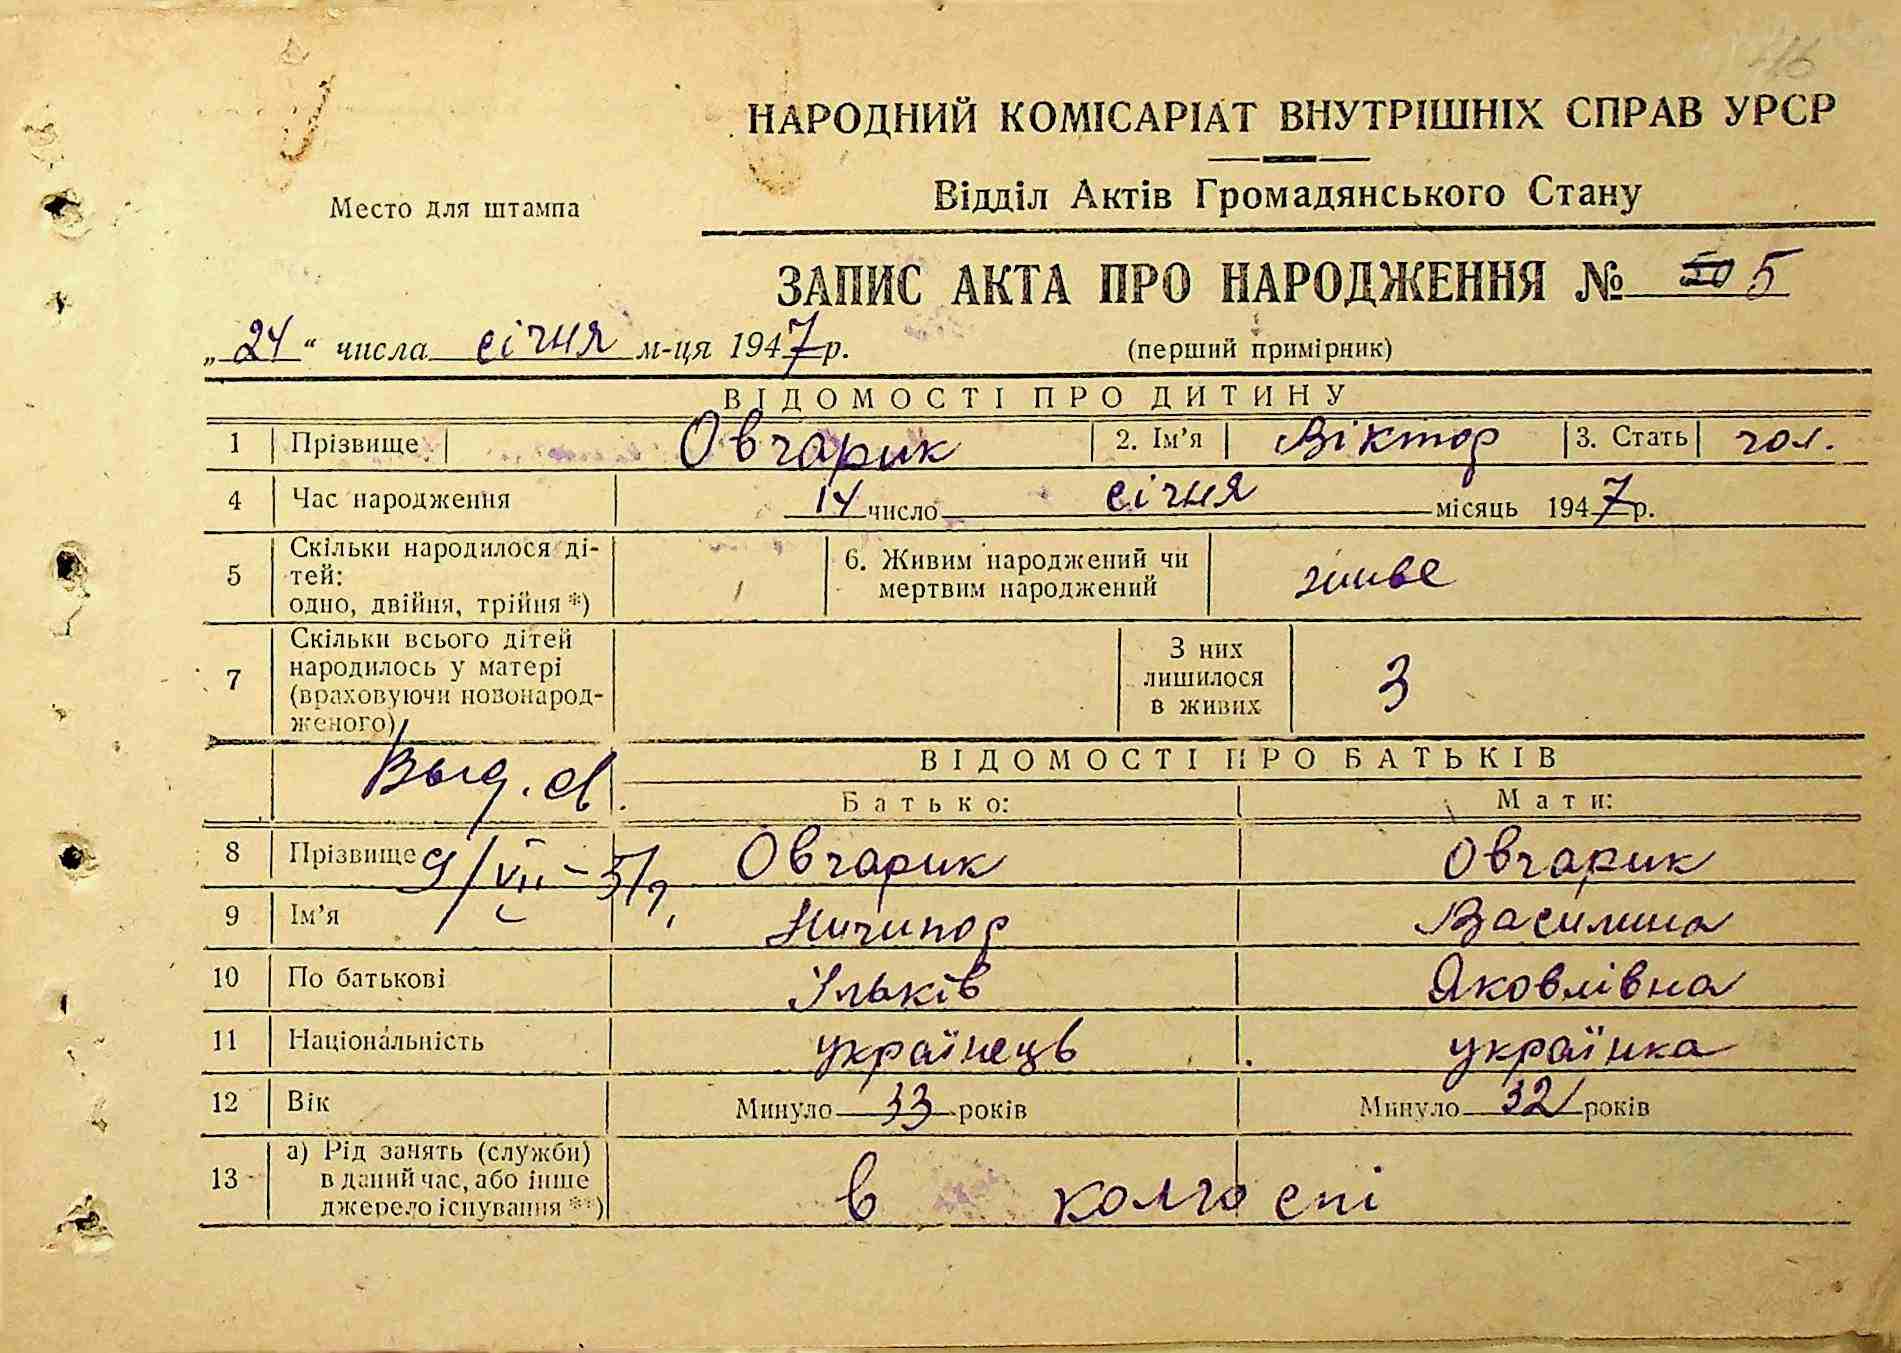 46
НАРОДНИЙ КОМІСАРІАТ ВНУТРІШНІХ СПРАВ УРСР
Место для штампа
Відділ Актів Громадянського Стану
ЗАПИС АКТА ПРО НАРОДЖЕННЯ № 50 5
„24“ числа січня м-ця 1947р.
(перший примірник)
ВІДОМОСТІ ПРО ДИТИНУ
1 Прізвище Овчарик 2. Ім'я Віктор 3. Стать чол.
4 Час народження 14 число січня місяць 1947р.
5 Скільки народилося ді-
тей:
одно, двійня, трійня *) 1 6. Живим народжений чи
мертвим народжений живе
7 Скільки всього дітей
народилось у матері
(враховуючи новонарод-
женого)
З них
лишилося
в живих 3
ВІДОМОСТІ ПРО БАТЬКІВ
Выд. св.
Батько: Мати:
9/VII – 57
8 Прізвище Овчарик Овчарик
9 Ім'я Ничипор Василина
10 По батькові Ільків Яковлівна
11 Національність українець українка
12 Вік Минуло 33 років Минуло 32 років
13 а) Рід занять (служби)
в даний час, або інше
джерело існування **) в колгоспі